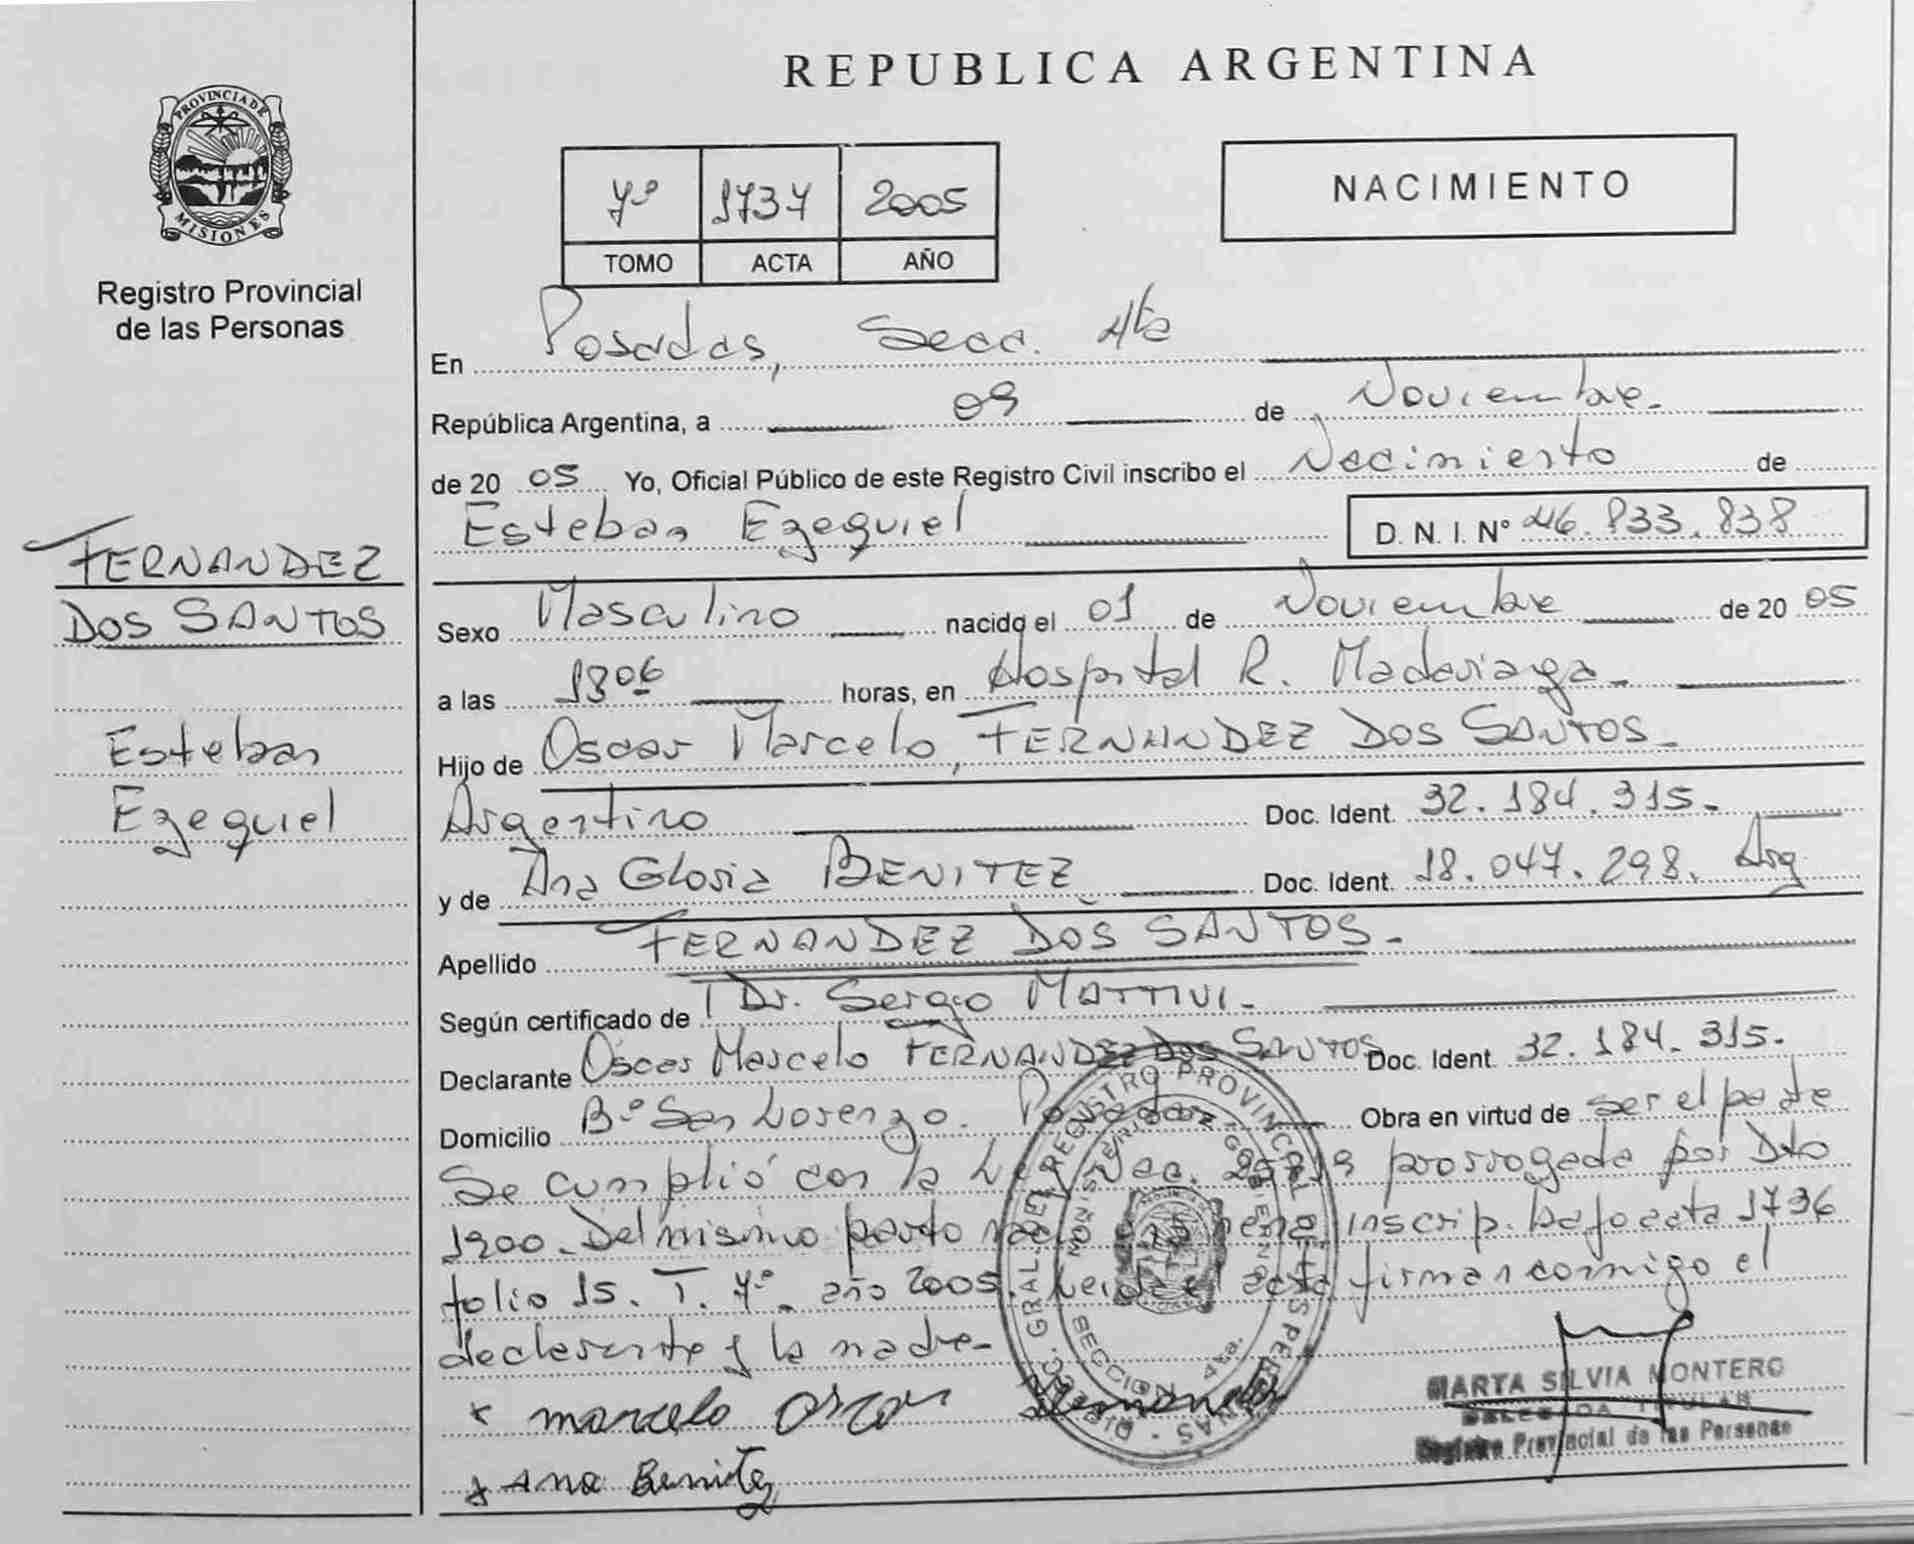 PROVINCIA DE
MISIONES
Registro Provincial
de las Personas
FERNANDEZ
DOS SANTOS
Esteban
Ezequiel
REPUBLICA ARGENTINA
7º 1737 2005
TOMO ACTA AÑO
NACIMIENTO
En Posadas, Secc. 4ta
República Argentina, a 09 de Noviembre.
de 20 05 Yo, Oficial Público de este Registro Civil inscribo el Nacimiento de
Esteban Ezequiel D. N. I. Nº 46.833.838
Sexo Masculino nacido el 01 de Noviembre de 20 05
a las 1306 horas, en Hospital R. Madariaga.
Hijo de Oscar Marcelo, FERNANDEZ DOS SANTOS.
Argentino Doc. Ident. 32.184.315.
y de Ana Gloria BENITEZ Doc. Ident. 18.047.298. Arg
Apellido FERNANDEZ DOS SANTOS.-
Según certificado de Dr. Sergio MATTIVI.
Declarante Oscar Marcelo FERNANDEZ DOS SANTOS Doc. Ident. 32.184.315.
Domicilio Bº San Lorenzo. Posadas Obra en virtud de ser el padre
Se cumplió con la Ley Nac. prorrogada por Dto
1900. Del mismo parto inscrip. bajo acta 1736
folio 15. T. 7º. año 2005. Leida el acta firman conmigo el
declarante y la madre-
x marcelo Oscar Fernandez
x Ana Benitez
DIREC. GRAL. DEL REGISTRO PROVINCIAL DE LAS PERSONAS
MINISTERIO DE GOBIERNO
SECCION 4ta.
MARTA SILVIA MONTERO
DELEGADA TITULAR
Registro Provincial de las Personas